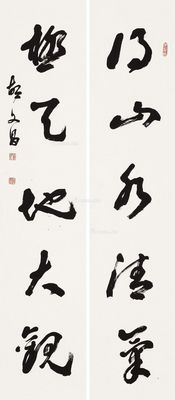 得山水清氣
極天地大觀
文昌